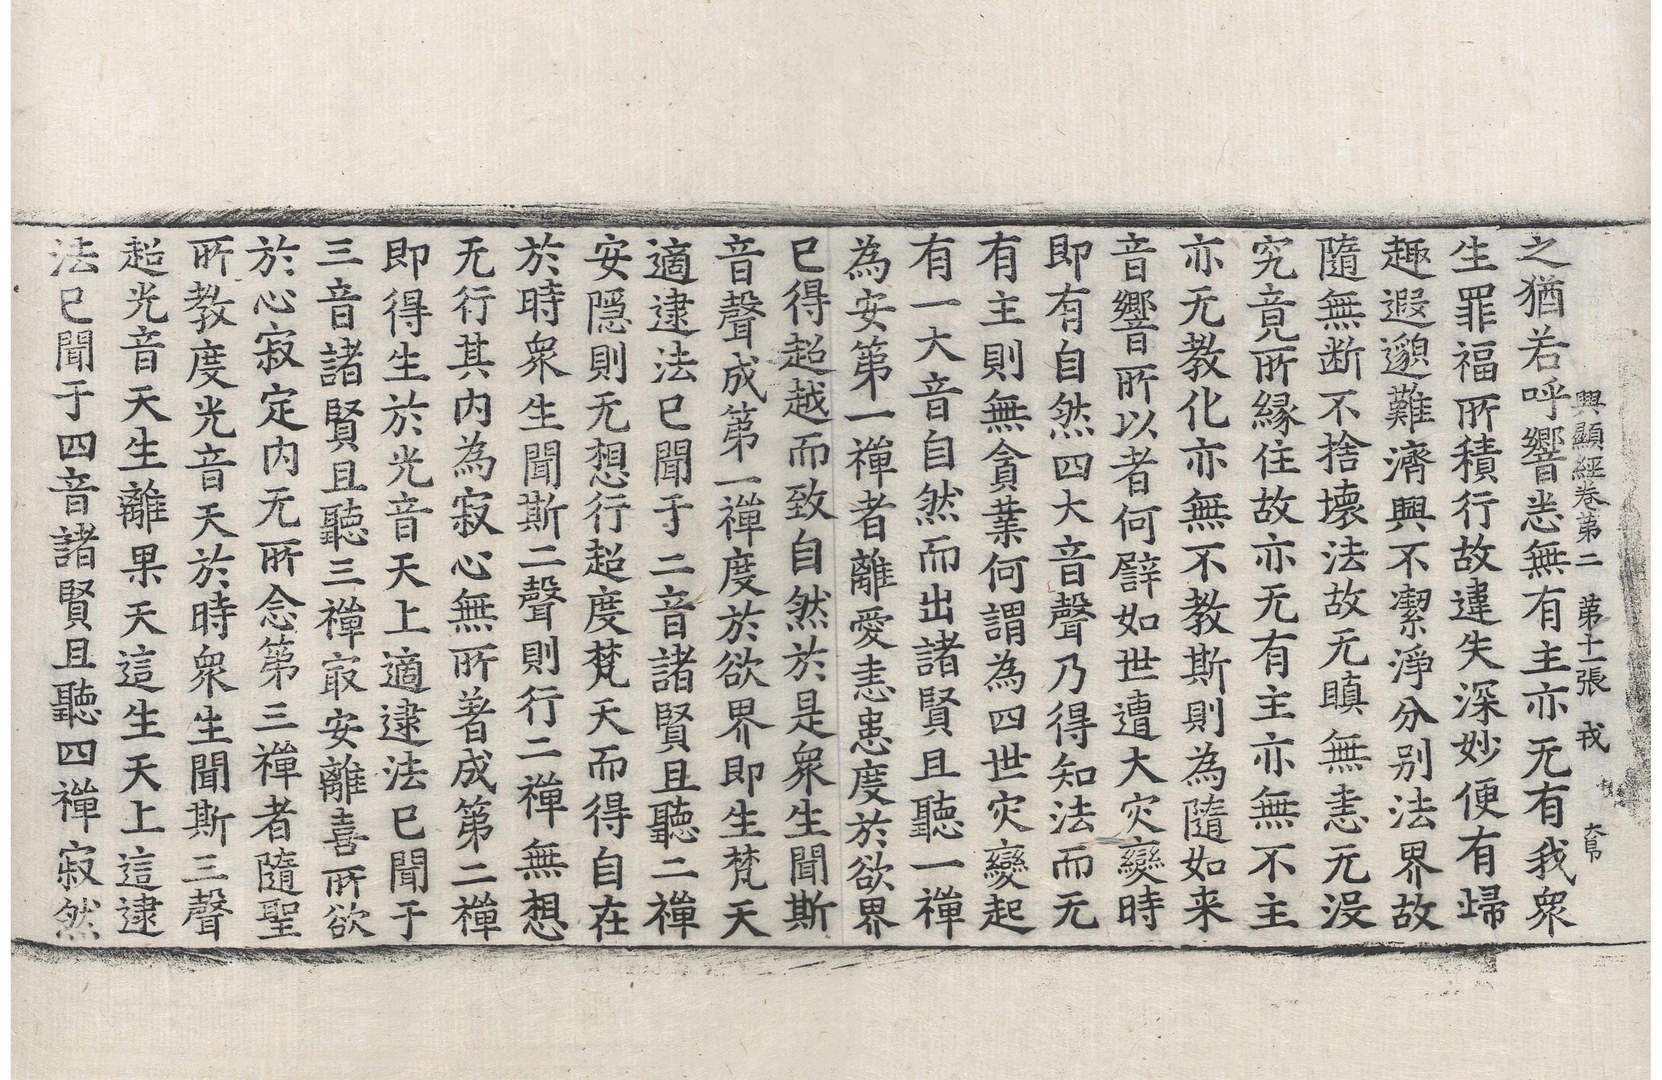 興顯經卷第二　第十一張　戎
之猶若呼響恙無有主亦无有我衆
生罪福所積行故違失深妙便有歸
趣遐邈難濟興不潔淨分别法界故
隨無断不捨壊法故无瞋無恚无没
究竟所縁住故亦无有主亦無不主
亦无教化亦無不教斯則為隨如来
音響所以者何譬如世遭大灾變時
即有自然四大音聲乃得知法而无
有主則無貪業何謂為四世灾變起
有一大音自然而出諸賢且聽一禅
為安第一禅者離愛恚患度於欲界
已得超越而致自然於是衆生聞斯
音聲成第一禅度於欲界即生梵天
適逮法已聞于二音諸賢且聽二禅
安隱則无想行超度梵天而得自在
於時衆生聞斯二聲則行二禅無想
无行其内為寂心無所著成第二禅
即得生於光音天上適逮法已聞于
三音諸賢且聽三禅㝡安離喜所欲
於心寂定内无所念第三禅者隨聖
所教度光音天於時衆生聞斯三聲
超光音天生離果天這生天上這逮
法已聞于四音諸賢且聽四禅寂然